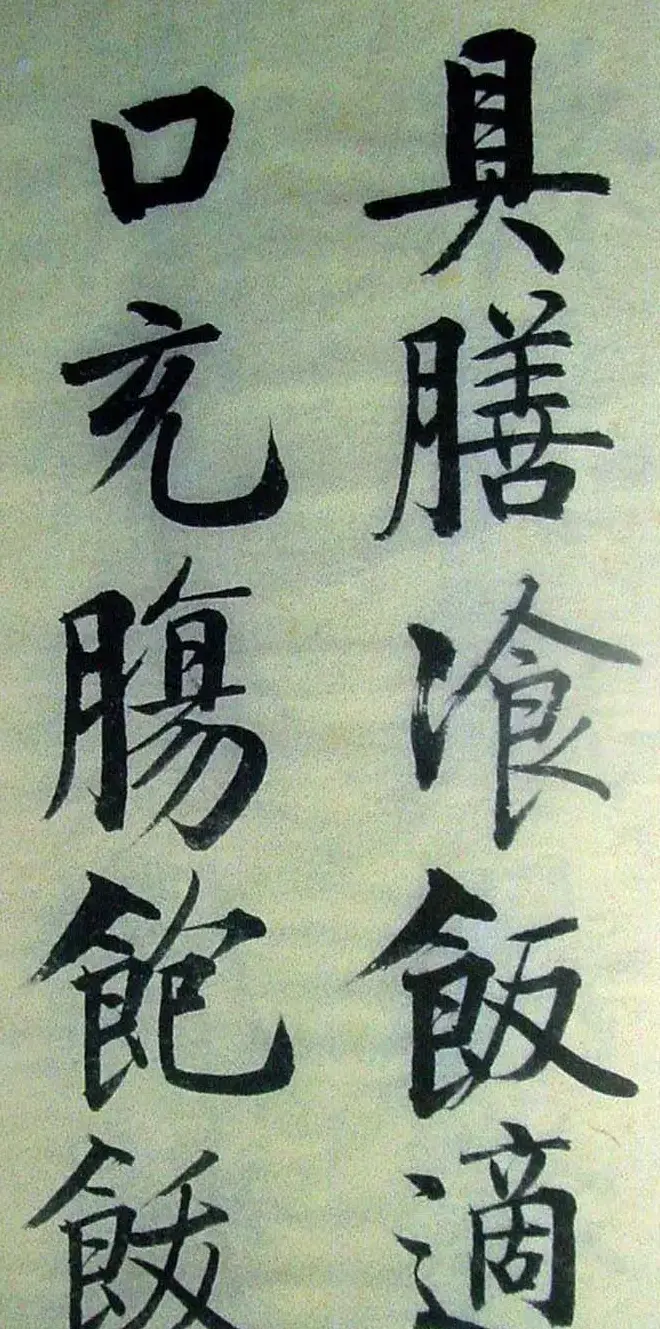 具膳飡飯適
口充膓飽飫